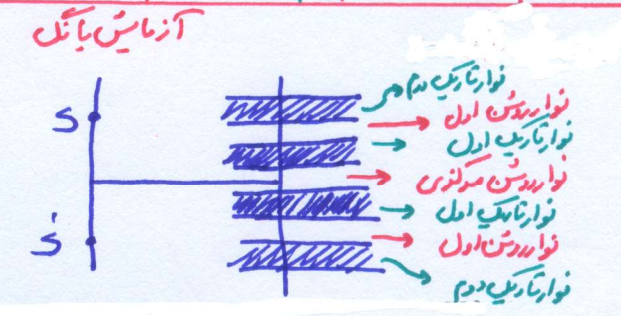 آزمایش یانگ
نوار تاریک دوم
نوار روشن اول
نوار تاریک اول
نوار روشن مرکزی
نوار تاریک اول
نوار روشن اول
نوار تاریک دوم
S
S'